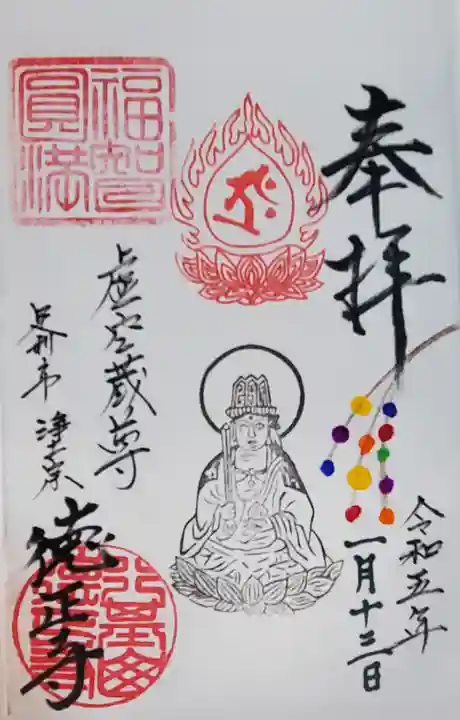 奉拝
令和五年
一月十三日
虚空蔵尊
足利市 浄土宗
徳正寺
福智
圓満